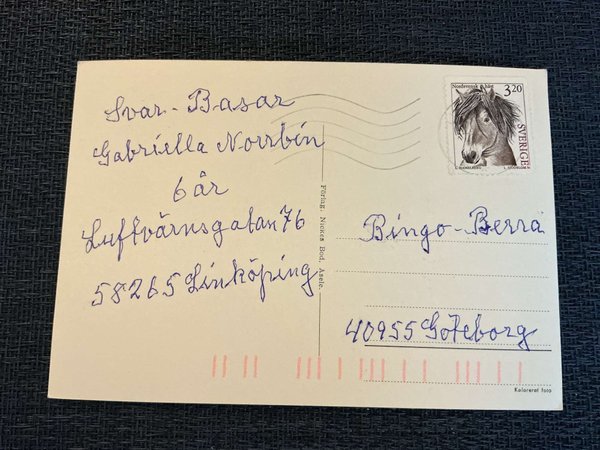 Svar-Basar
Gabriella Norrbin
6 år
Luftvärnsgatan 76
58265 Linköping
Nordsvensk häst
3.20
SVERIGE
Förlag: Nickes Bod, Åsele.
Bingo-Berra
40955 Göteborg
Kolorerat foto